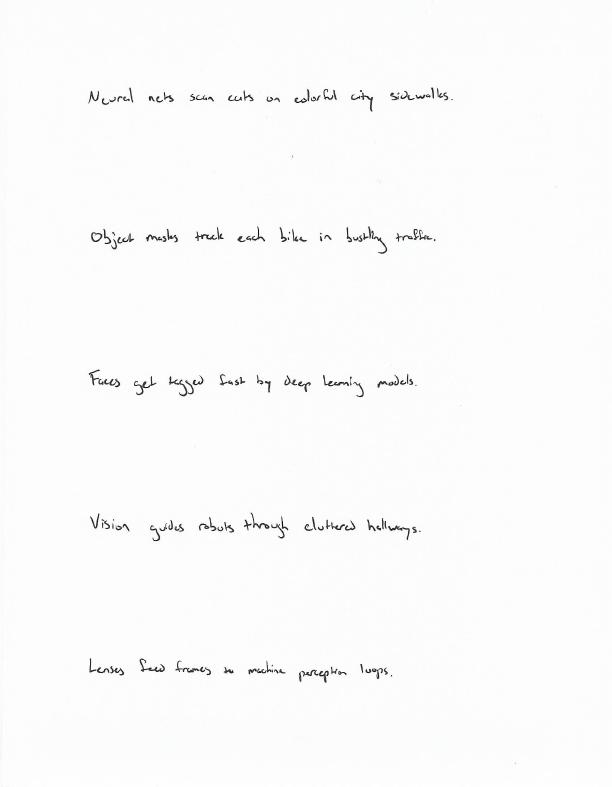 Neural nets scan cats on colorful city sidewalks.
Object masks track each bike in bustling traffic.
Faces get tagged fast by deep learning models.
Vision guides robots through cluttered hallways.
Lenses feed frames to machine perception loops.